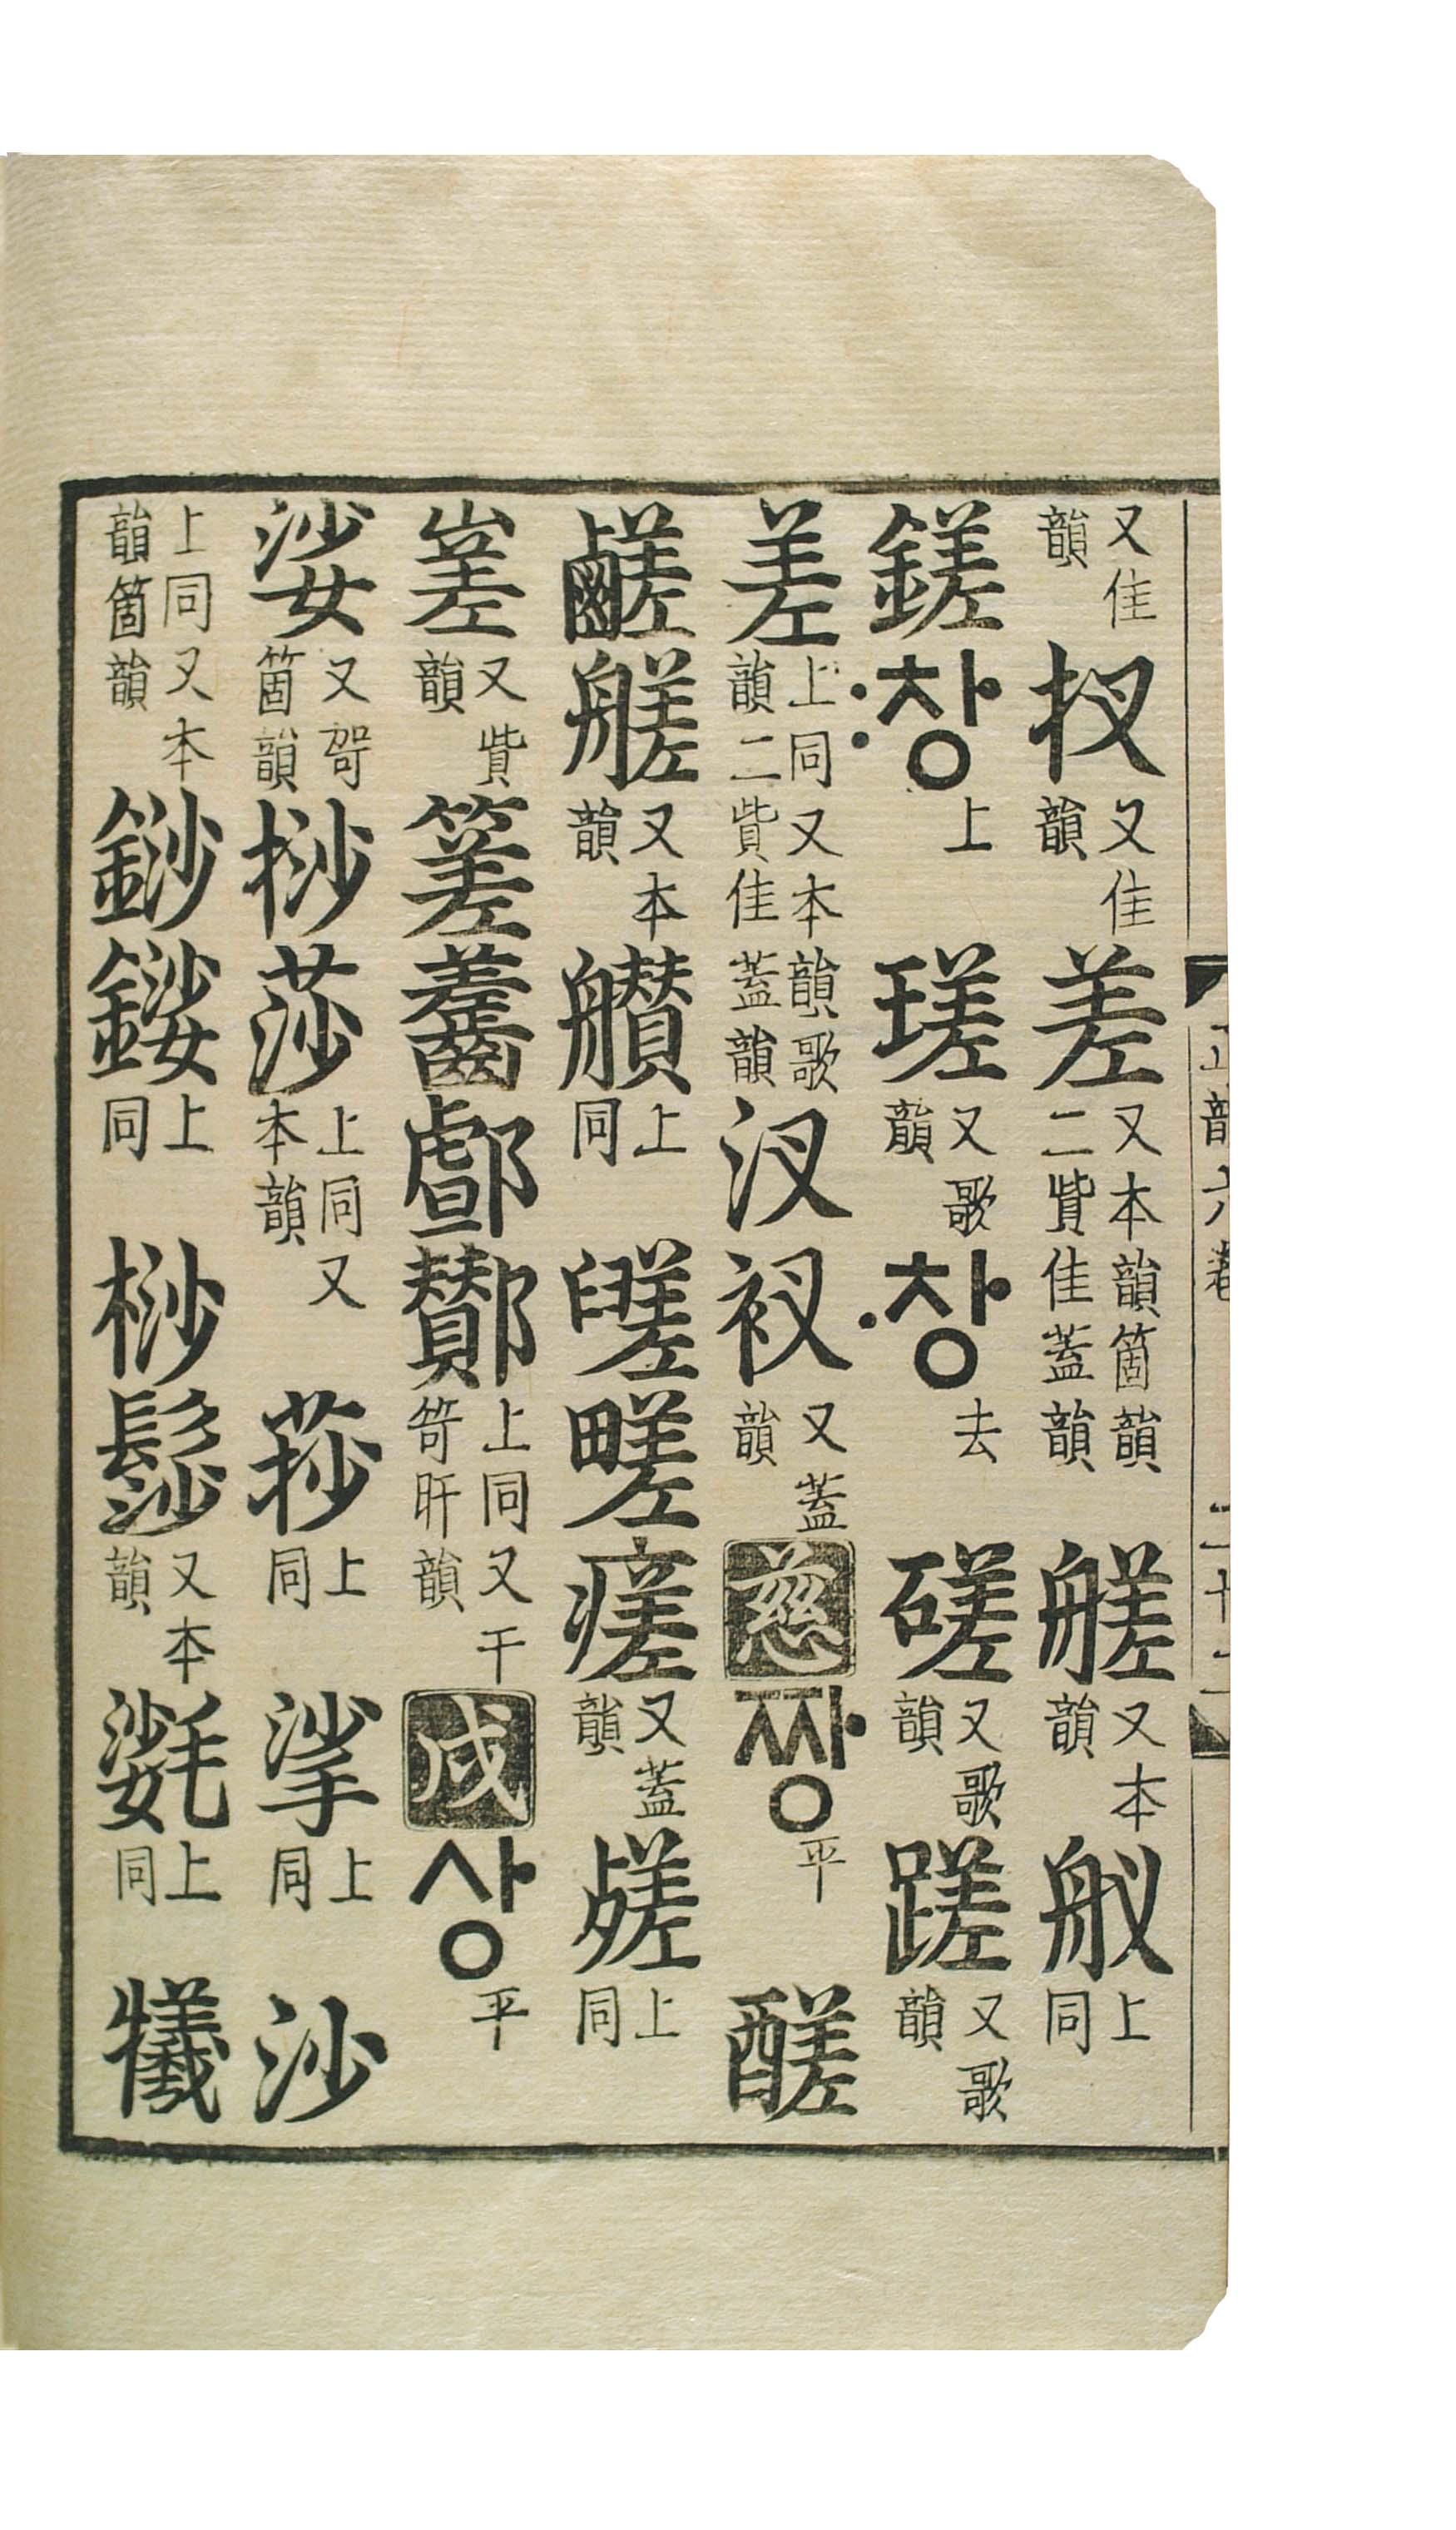 正韻六卷 二十二
又佳韻 扠 又佳韻 差 又本韻箇韻二貲佳蓋韻 艖 又本韻 上同
鎈 〯창 上 瑳 又歌韻 〮창 去 磋 又歌韻 蹉 又歌韻
差 上同又本韻歌韻二貲佳蓋韻 汊 衩 又蓋韻 慈 짱 平 醝
鹺 艖 又本韻 上同 瘥 又蓋韻 上同
嵳 又貲韻 齹 酇 上同又干笴旰韻 戌 상 平
娑 又哿箇韻 挱 莎 上同又本韻 莏 上同 挲 上同 沙
上同又本韻箇韻 上同 桫 髿 又本韻 上同 犧